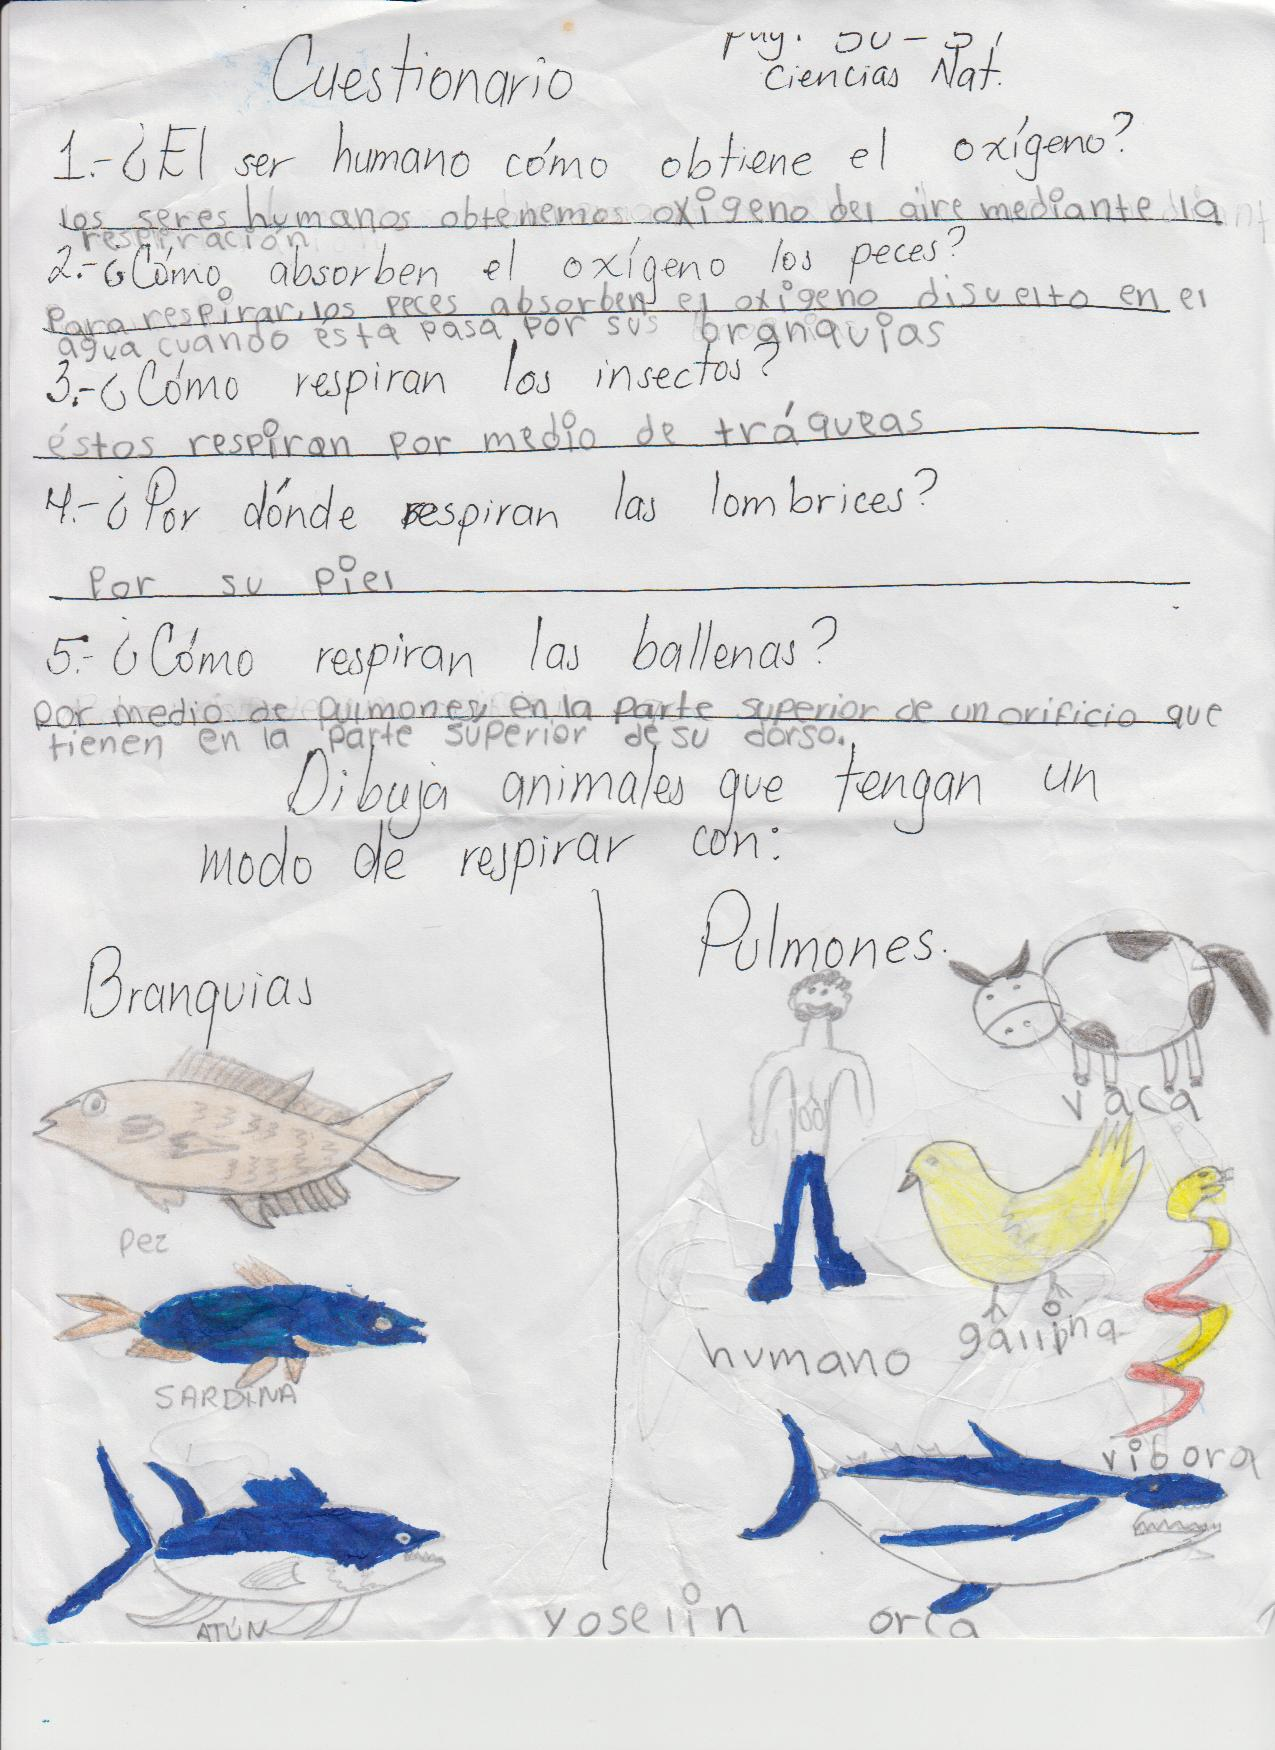 Cuestionario
pág. 50-51
Ciencias Nat.
1.-¿El ser humano cómo obtiene el oxígeno?
los seres humanos obtenemos oxigeno del aire mediante la
respiración
2.-¿Cómo absorben el oxígeno los peces?
Para respirar, los peces absorben el oxigeno disuelto en el
agua cuando ésta pasa por sus branquias
3.-¿Cómo respiran los insectos?
éstos respiran por medio de tráqueas
4.-¿Por dónde respiran las lombrices?
Por su piel
5.-¿Cómo respiran las ballenas?
por medio de pulmones, en la parte superior de un orificio que
tienen en la parte superior de su dorso.
Dibuja animales que tengan un
modo de respirar con:
Branquias
Pulmones.
vaca
pez
gallina
humano
SARDINA
vibora
ATÚN
yoselin
orca